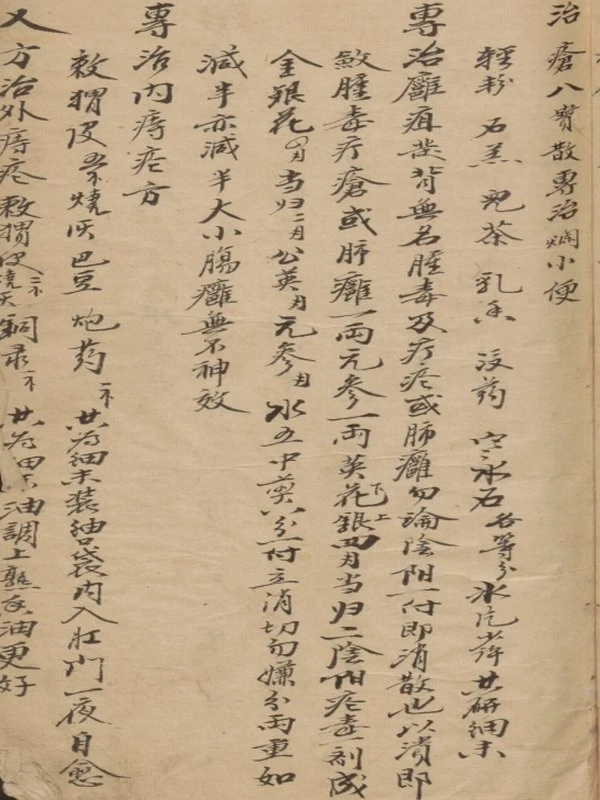 治瘡八寶散專治爛小便
輕粉 石羔 兒茶 乳香 没药 寒水石各等分 水片少許 共研細末
專治癰疽發背無名腫毒及疔疮或肺癰勿論陰阳一付即消散也以潰即
斂腫毒疔瘡或肺癰一両元参一両英花銀四月当归二陰阳疮毒一剂成
金銀花四月当归二月公英月元参月 水五中煎八分一付立消切勿嫌分両重如
減半亦減半大小腸癰無不神效
專治内痔疮方
敕猬皮 烧灰 巴豆 炮药 共为細末装紬口袋内入肛門一夜自愈
又方治外痔疮敕猬皮烧灰 銅 共为細末油調上熟香油更好